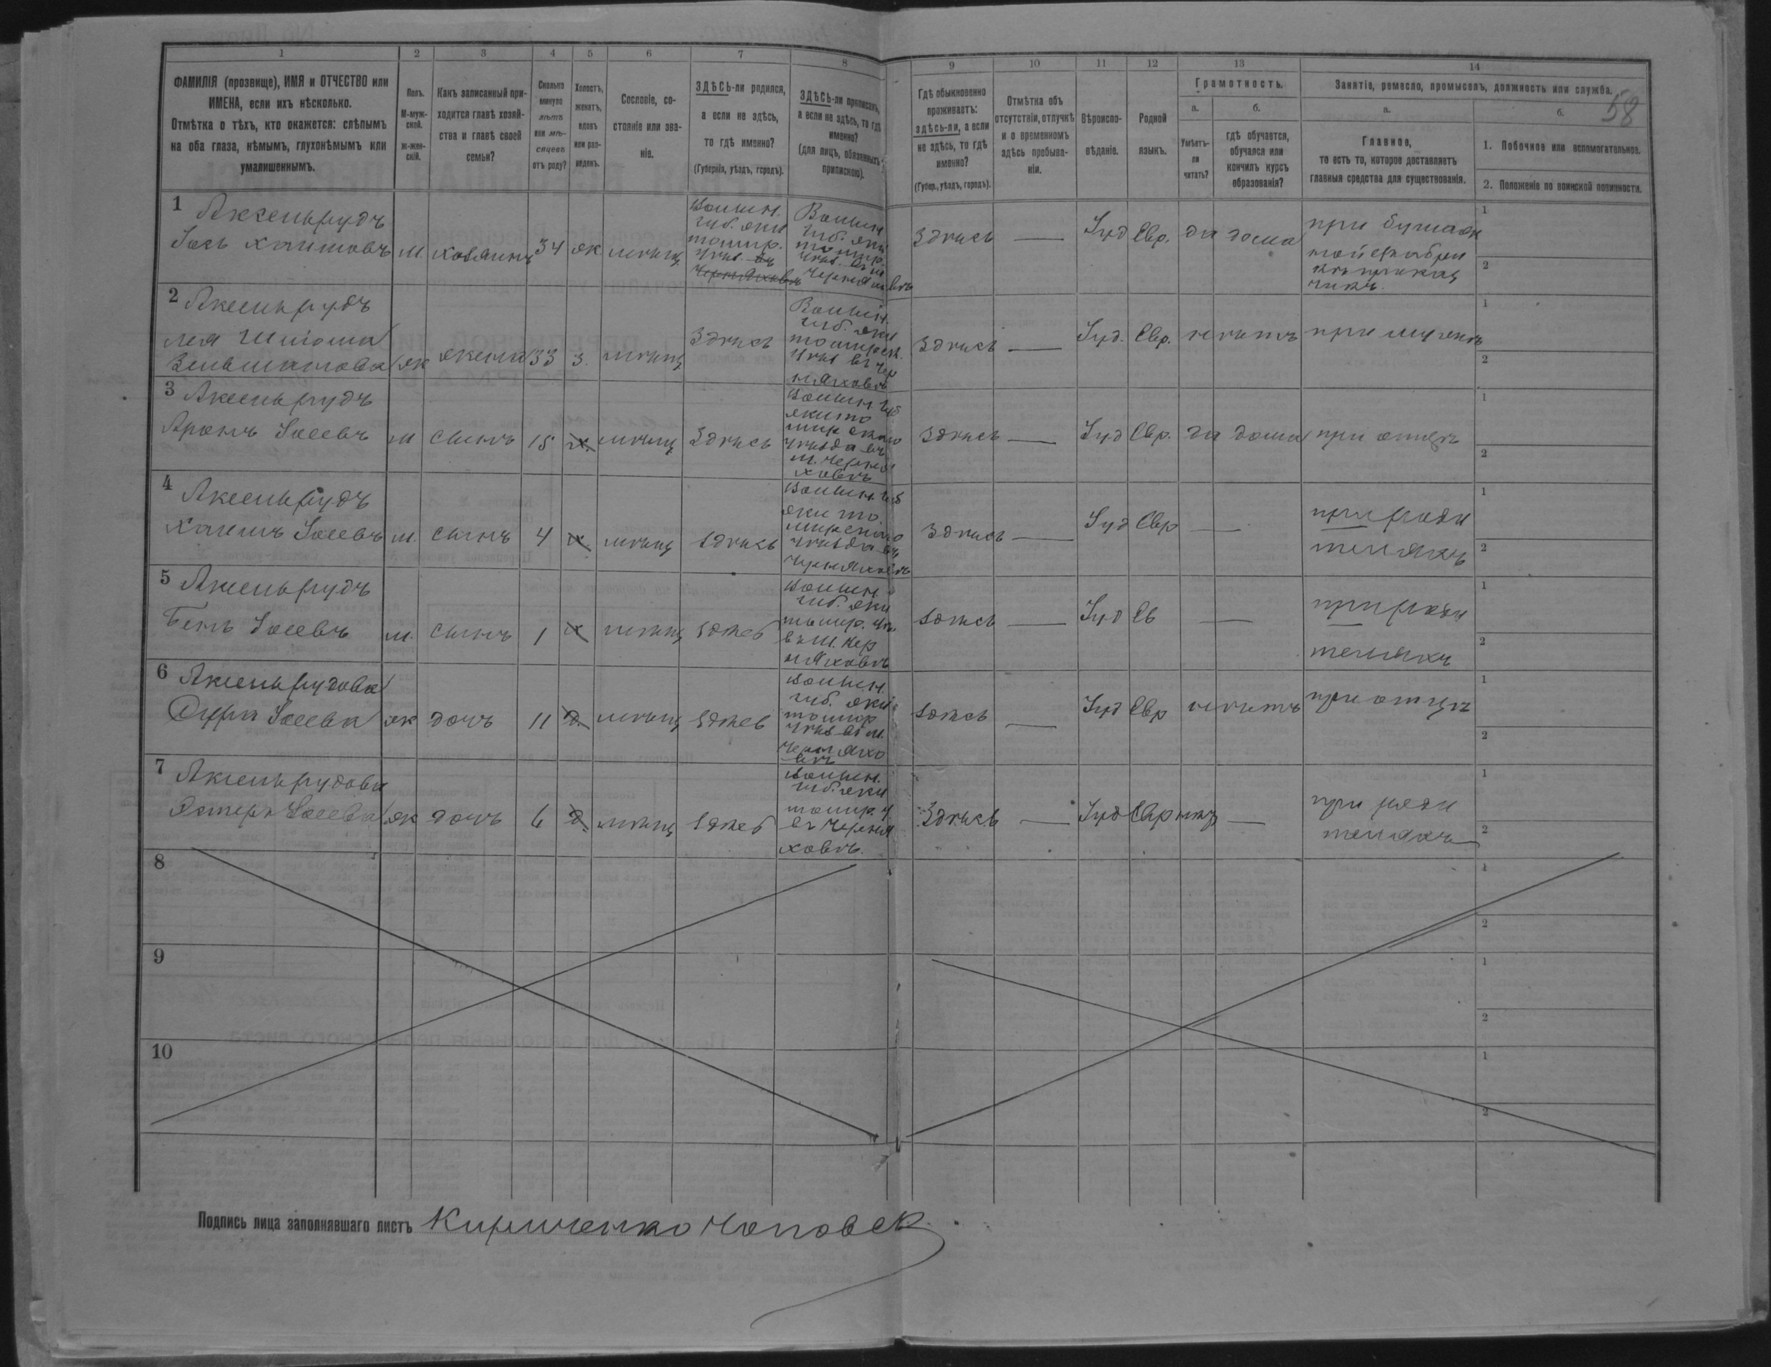 58
1 2 3 4 5 6 7 8 9 10 11 12 13 14
ФАМИЛІЯ (прозвище), ИМЯ и ОТЧЕСТВО или
ИМЕНА, если ихъ нѣсколько.
Отмѣтка о тѣхъ, кто окажется: слѣпымъ
на оба глаза, нѣмымъ, глухонѣмымъ или
умалишеннымъ.
Полъ.
М-муж-
ской.
Ж-жен-
скій.
Какъ записанный при-
ходится главѣ хозяй-
ства и главѣ своей
семьи?
Сколько
минуло
лѣтъ
или мѣ-
сяцевъ
отъ роду?
Холостъ,
женатъ,
вдовъ
или раз-
веденъ.
Сословіе, со-
стояніе или зва-
ніе.
ЗДѢСЬ-ли родился,
а если не здѣсь,
то гдѣ именно?
(Губернія, уѣздъ, городъ).
ЗДѢСЬ-ли приписанъ,
а если не здѣсь, то гдѣ
именно?
(для лицъ, обязанныхъ
припискою).
Гдѣ обыкновенно
проживаетъ:
здѣсь-ли, а если
не здѣсь, то гдѣ
именно?
(Губер., уѣздъ, городъ).
Отмѣтка объ
отсутствіи, отлучкѣ
и о временномъ
здѣсь пребыва-
ніи.
Вѣроиспо-
вѣданіе.
Родной
языкъ.
Грамотность.
а.
Умѣетъ-
ли
читать?
б.
гдѣ обучается,
обучался или
кончилъ курсъ
образованія?
Занятіе, ремесло, промыселъ, должность или служба.
а.
Главное,
то есть то, которое доставляетъ
главныя средства для существованія.
б.
1. Побочное или вспомогательное.
2. Положеніе по воинской повинности.
1 Аксельрудъ
Іось Хаимовъ м хозяинъ 34 ж мѣщ
Волын.
губ. жи
томир.
Волын
губ. жи
томир.
Здѣсь — Іуд Евр. да дома
2 Аксельрудъ
Лея
ж жена 33 з мѣщ Здѣсь
Волын.
губ. жи
томирск.
Здѣсь — Іуд. Евр. нѣтъ при мужѣ
3 Аксельрудъ
Аронъ Іосевъ м сынъ 15 х мѣщ Здѣсь
Волын губ
жито
мирскаго
уѣзда въ
м. Черня
ховѣ
Здѣсь — Іуд Евр. да дома при отцѣ
4 Аксельрудъ
Хаимъ Іосевъ м сынъ 4 х мѣщ здѣсь
Волын губ
жито
мирскаго
уѣзда въ
Черняховѣ
Здѣсь — Іуд Евр — при роди
теляхъ
5 Аксельрудъ
Іосевъ м. сынъ 1 х мѣщ здѣсь
Волын.
губ. жи
томир. уѣ.
въ м. Чер
няховѣ
здѣсь — Іуд Ев — при роди
теляхъ
6 Аксельрудова
Іосева ж дочь 11 д мѣщ здѣсь
Волын.
губ. жи
томир
уѣз въ м.
Черняхо
вѣ
здѣсь — Іуд Евр нѣтъ при отцѣ
7 Аксельрудова
Эстеръ Іосева ж дочь 6 д мѣщ здѣсь
Волын.
губ. жи
томир. у
въ Черня
ховѣ.
Здѣсь — Іуд Евр нѣтъ — при роди
теляхъ
8
9
10
Подпись лица заполнявшаго листъ